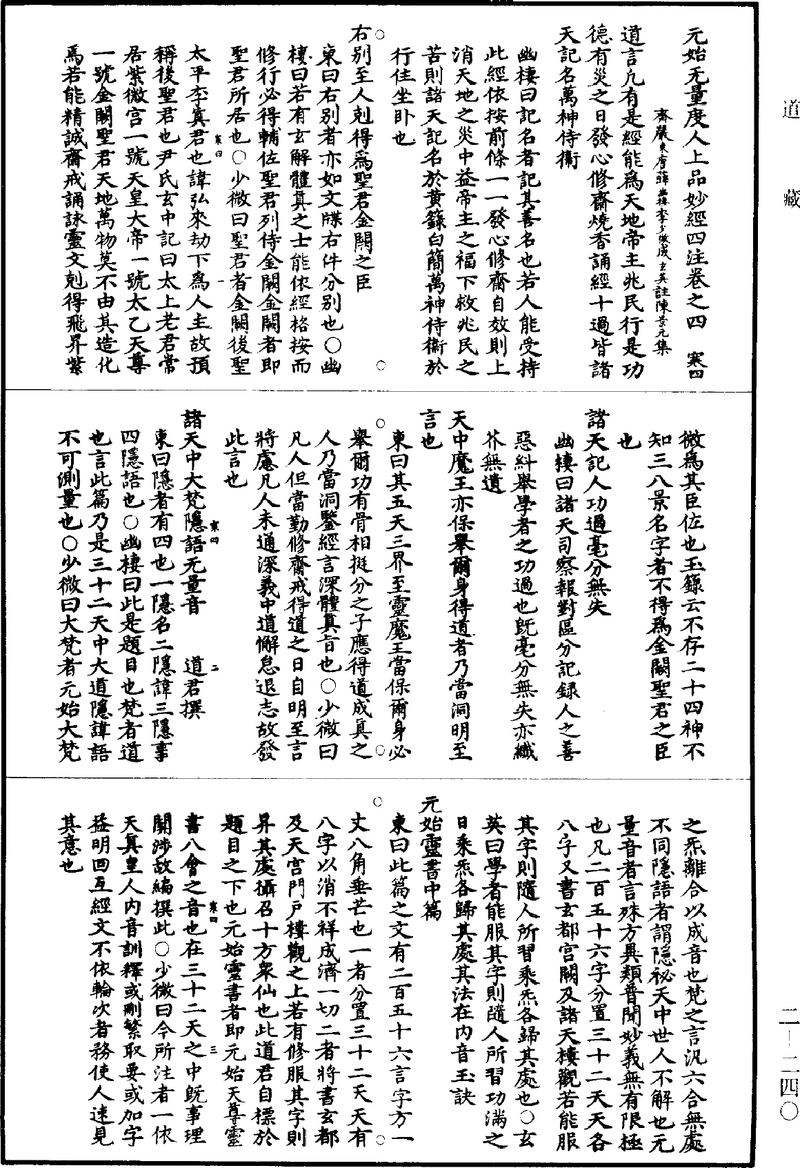 道藏
元始无量度人上品妙經四注卷之四 寒四
齊嚴東唐薛幽棲李少微成玄英註陳景元集
道言凢有是經能爲天地帝主兆民行是功
德有災之日發心修齋燒香誦經十過皆諸
天記名萬神侍衛
幽棲曰記名者記其善名也若人能受持
此經依按前條一一發心修齋自效則上
消天地之災中益帝主之福下救兆民之
苦則諸天記名於黄籙白簡萬神侍衛於
行住坐卧也
右别至人剋得爲聖君金闕之臣
東曰右别者亦如文牒右件分别也○幽
棲曰若有玄解體真之士能依經格按而
修行必得輔佐聖君列侍金闕金闕者即
聖君所居也○少微曰聖君者金闕後聖
寒四 一
太平李真君也諱弘來劫下爲人主故預
稱後聖君也尹氏玄中記曰太上老君常
居紫微宫一號天皇大帝一號太乙天尊
一號金闕聖君天地萬物莫不由其造化
焉若能精誠齋戒誦詠靈文剋得飛昇紫
微爲其臣佐也玉籙云不存二十四神不
知三八景名字者不得爲金闕聖君之臣
也
諸天記人功過毫分無失
幽棲曰諸天司察報對區分記録人之善
惡糾舉學者之功過也旣毫分無失亦纖
芥無遺
天中魔王亦保舉爾身得道者乃當洞明至
言也
東曰其五天三界至靈魔王當保爾身必
舉爾功有骨相挺分之子應得道成真之
人乃當洞鑒經言深體真旨也○少微曰
凡人但當勤修齋戒得道之日自明至言
將慮凡人未通深義中道懈怠退志故發
此言也
寒四 二
諸天中大梵隱語无量音 道君撰
東曰隱者有四也一隱名二隱諱三隱事
四隱語也○幽棲曰此是題目也梵者道
也言此篇乃是三十二天中大道隱諱語
不可測量也○少微曰大梵者元始大梵
之炁離合以成音也梵之言汎六合無處
不同隱語者謂隱秘天中世人不解也元
量音者言殊方異類普聞妙義無有限極
也凡二百五十六字分置三十二天天各
八字又書玄都宫闕及諸天樓觀若能服
其字則隨人所習乘炁各歸其處也○玄
英曰學者能服其字則隨人所習功滿之
日乘炁各歸其處其法在内音玉訣
元始靈書中篇
東曰此篇之文有二百五十六言字方一
丈八角垂芒也一者分置三十二天天有
八字以消不祥成濟一切二者將書玄都
及天宫門戸樓觀之上若有修服其字則
昇其處攝召十方衆仙也此道君自標於
題目之下也元始靈書者即元始天尊靈
寒四 三
書八會之音也在三十二天之中旣事理
關涉故編撰此○少微曰今所注者一依
天真皇人内音訓釋或刪繁取要或加字
益明回互經文不依輪次者務使人速見
其意也
二—二四〇